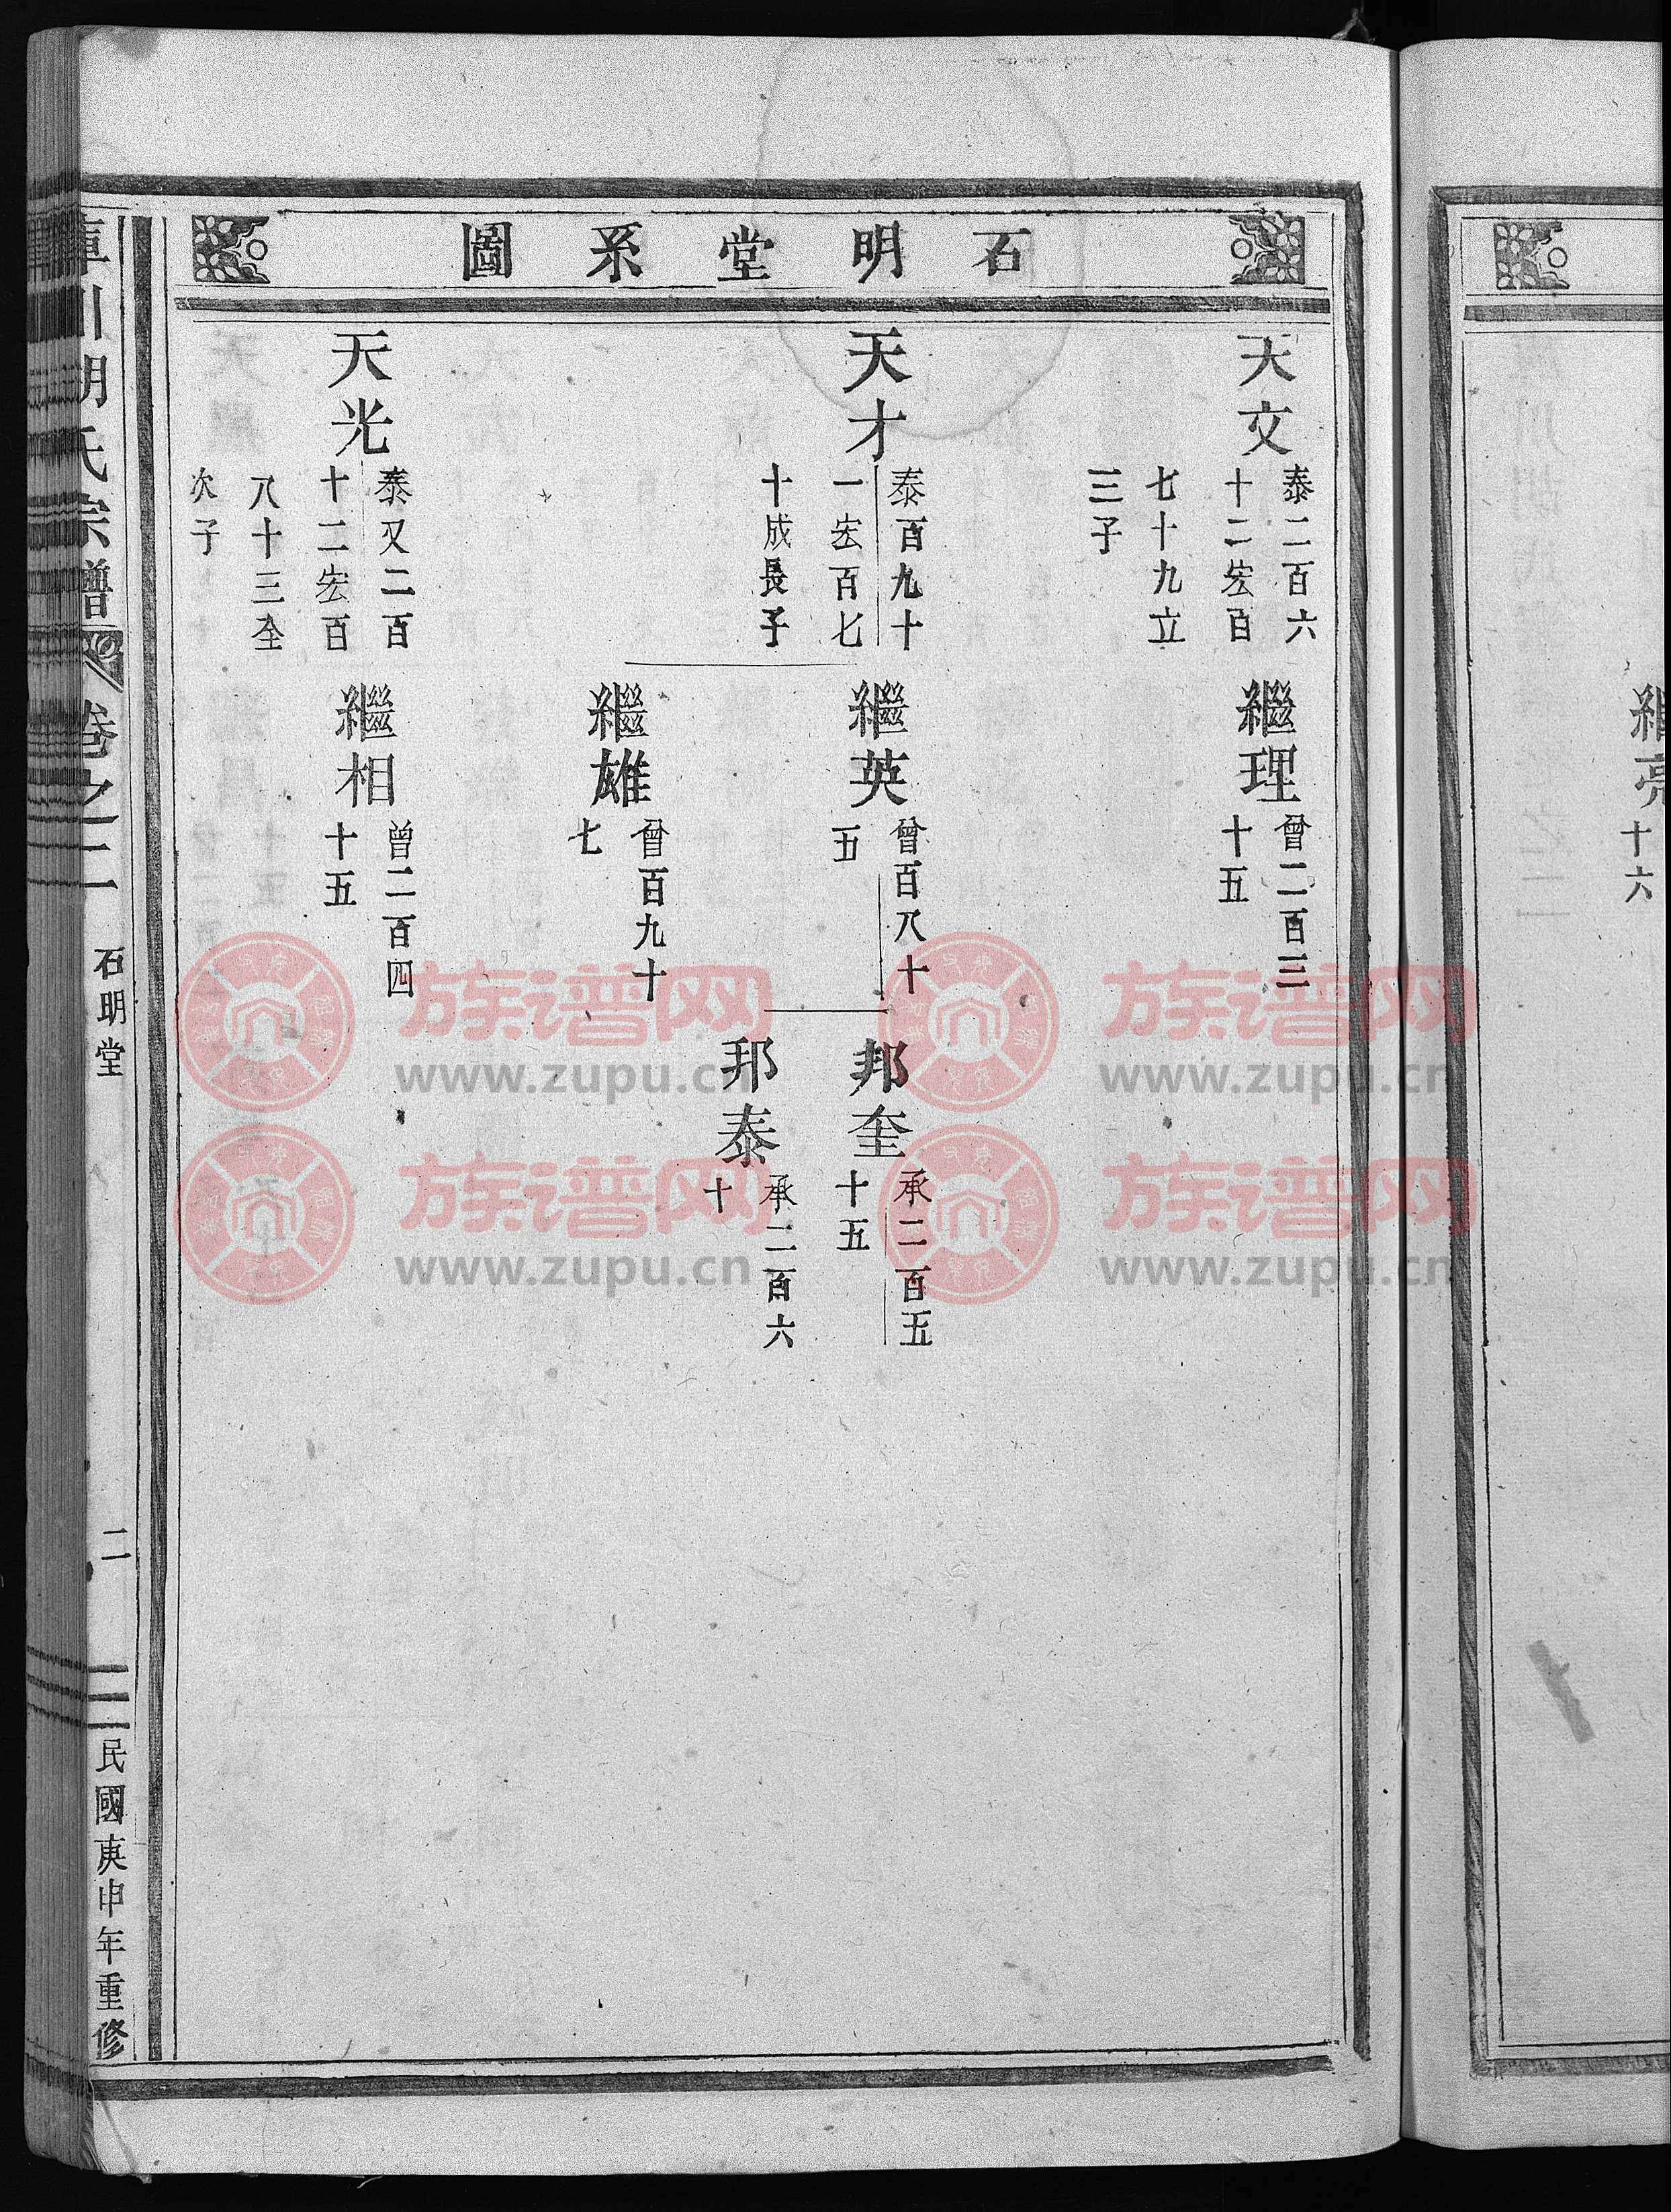 石明堂系圖
天文
泰二百六
十二宏百
七十九立
三子
繼理
曾二百三
十五
天才
泰百九十
一宏百七
十成長子
繼英
曾百八十
五
邦奎
承二百五
十五
邦泰
承二百六
十
繼雄
曾百九十
七
天光
泰又二百
十二宏百
八十三全
次子
繼相
曾二百四
十五
川胡氏宗譜 卷之二 石明堂 二 民國庚申年重修
繼亮
十六
族谱网
www.zupu.cn
族谱网
www.zupu.cn
族谱网
www.zupu.cn
族谱网
www.zupu.cn